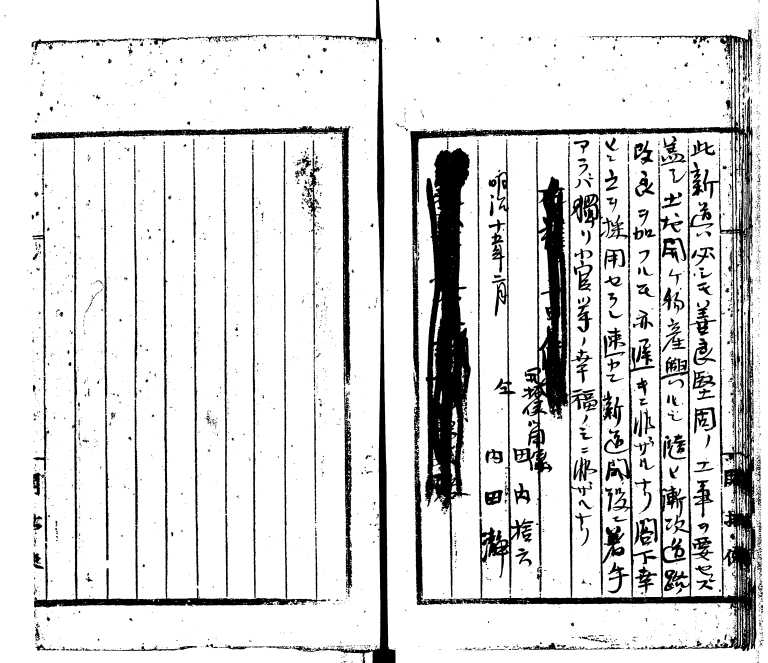 此新道ハ必シモ善良堅固ノ工事ヲ要セズ
蓋シ土地開ケ物産興ルニ随ヒ漸次道路
改良ヲ加フルモ亦遅キニ非ザルナリ閣下幸
ヒニ之ヲ採用セラレ速カニ新道開設ニ著手
アラバ獨リ小官等ノ幸福ノミニ非ザルナリ
田内捨六
明治十五年二月
仝 内田瀞